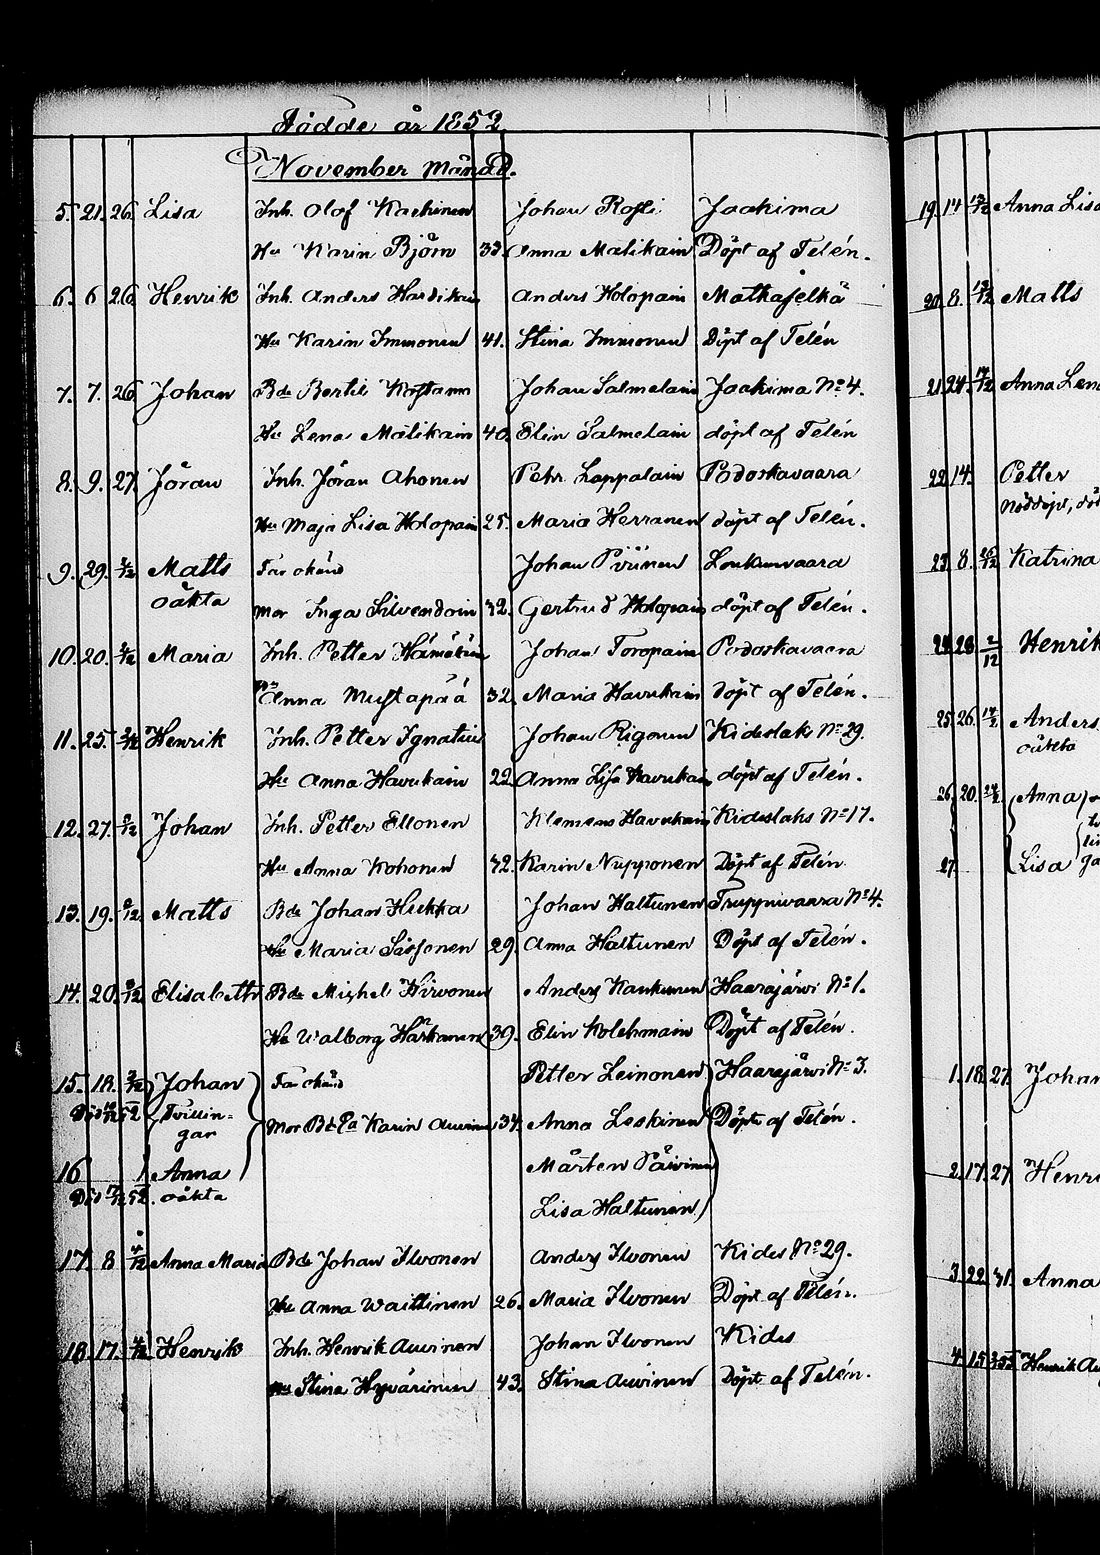 Födde år 1852
November Månad.
5. 21. 26. Lisa Inh. Olof Kaehinen Johan Rossi Joakima
Hu Karin Björn 33. Anna Malikain Döpt af Telén.
6. 6 26 Henrik Inh. Anders Hardikain Anders Holopain Matkaselkä
Hu Karin Immonen 41. Stina Immonen Döpt af Telén
7. 7. 26 Johan Bde Bertil Kostamo Johan Salmelain Joakima No 4.
Hu Lena Malikain 40. Elin Salmelain döpt af Telén
8. 9. 27. Jöran Inh. Jöran Ahonen Pehr Lappalain Podoskavaara
Hu Maja Lisa Holopain 25. Maria Herranen döpt af Telén.
9. 29. 2/12 Matts Far okänd Johan Piinen Loukunvaara
oäkta Mor Inga Silvendoin 42. Gertrud Holopain döpt af Telén.
10. 20. 2/12 Maria Inh. Petter Hämäläin Johan Toropain Podoskavaara
Hu Anna Mustapää 32. Maria Havukain döpt af Telén.
11. 25. 2/12 Henrik Inh. Petter Ignatius Johan Rigonen Kideslaks No 29.
Hu Anna Havukain 22. Anna Lisa Havukain döpt af Telén.
12. 27. 2/12 Johan Inh. Petter Ellonen Klemens Havukain Kideslaks No 17.
Hu Anna Kohonen 42. Karin Nupponen Döpt af Telén
13. 19. 2/12 Matts Bde Johan Hukka Johan Haltunen Truppuvaara No 4.
Hu Maria Sassonen 29. Anna Haltunen Döpt af Telén.
14. 20. 2/12 Elisabeth Bde Michel Hirvonen Anders Kaukunen Haarajärvi No 1.
Hu Walborg Härkönen 39. Elin Kolehmain Döpt af Telén.
15. 18. 2/12 Johan Far okänd Petter Leinonen Haarajärvi No 3.
Död 52. Tvillin- Mor Bde Pa Karin Auvinen 34. Anna Leskinen Döpt af Telén.
gar
16 Anna Mårten Päivinen
Död 52. oäkta Lisa Haltunen
17. 8 4/12 Anna Maria Bde Johan Ilvonen Anders Ilvonen Kides No 29.
Hu Anna Waittinen 26. Maria Ilvonen Döpt af Telén.
18. 17. 4/12 Henrik Inh. Henrik Auvinen Johan Ilvonen Kides
Hu Stina Hyvärinen 43. Stina Auvinen Döpt af Telén.
19. 14 12/12 Anna Lisa
20. 8. 12/12 Matts
21. 24. 12/12 Anna Lena
22. 14. Petter
nöddöpt, dö
23. 8. 26/12 Katrina
24. 28. 2/12 Henrik
25. 26. Anders
oäkta
26. 20. Anna
27. Lisa
1. 18. 27. Johan
2. 17. 27. Henri
3. 22. 31. Anna
4. 15. Henrik Au